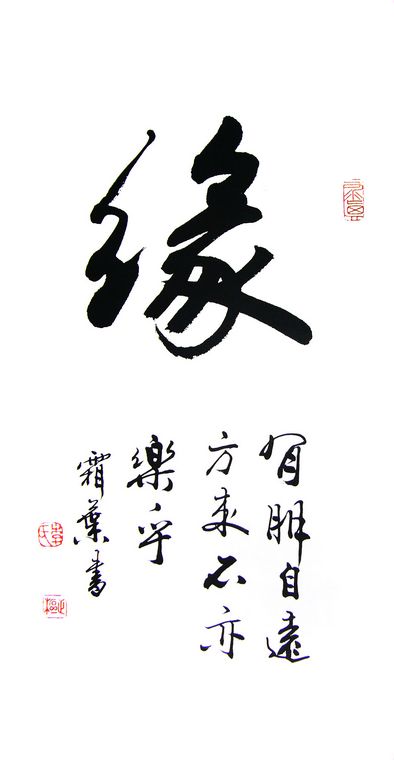 缘
有朋自遠
方来不亦
樂乎
霜葉書